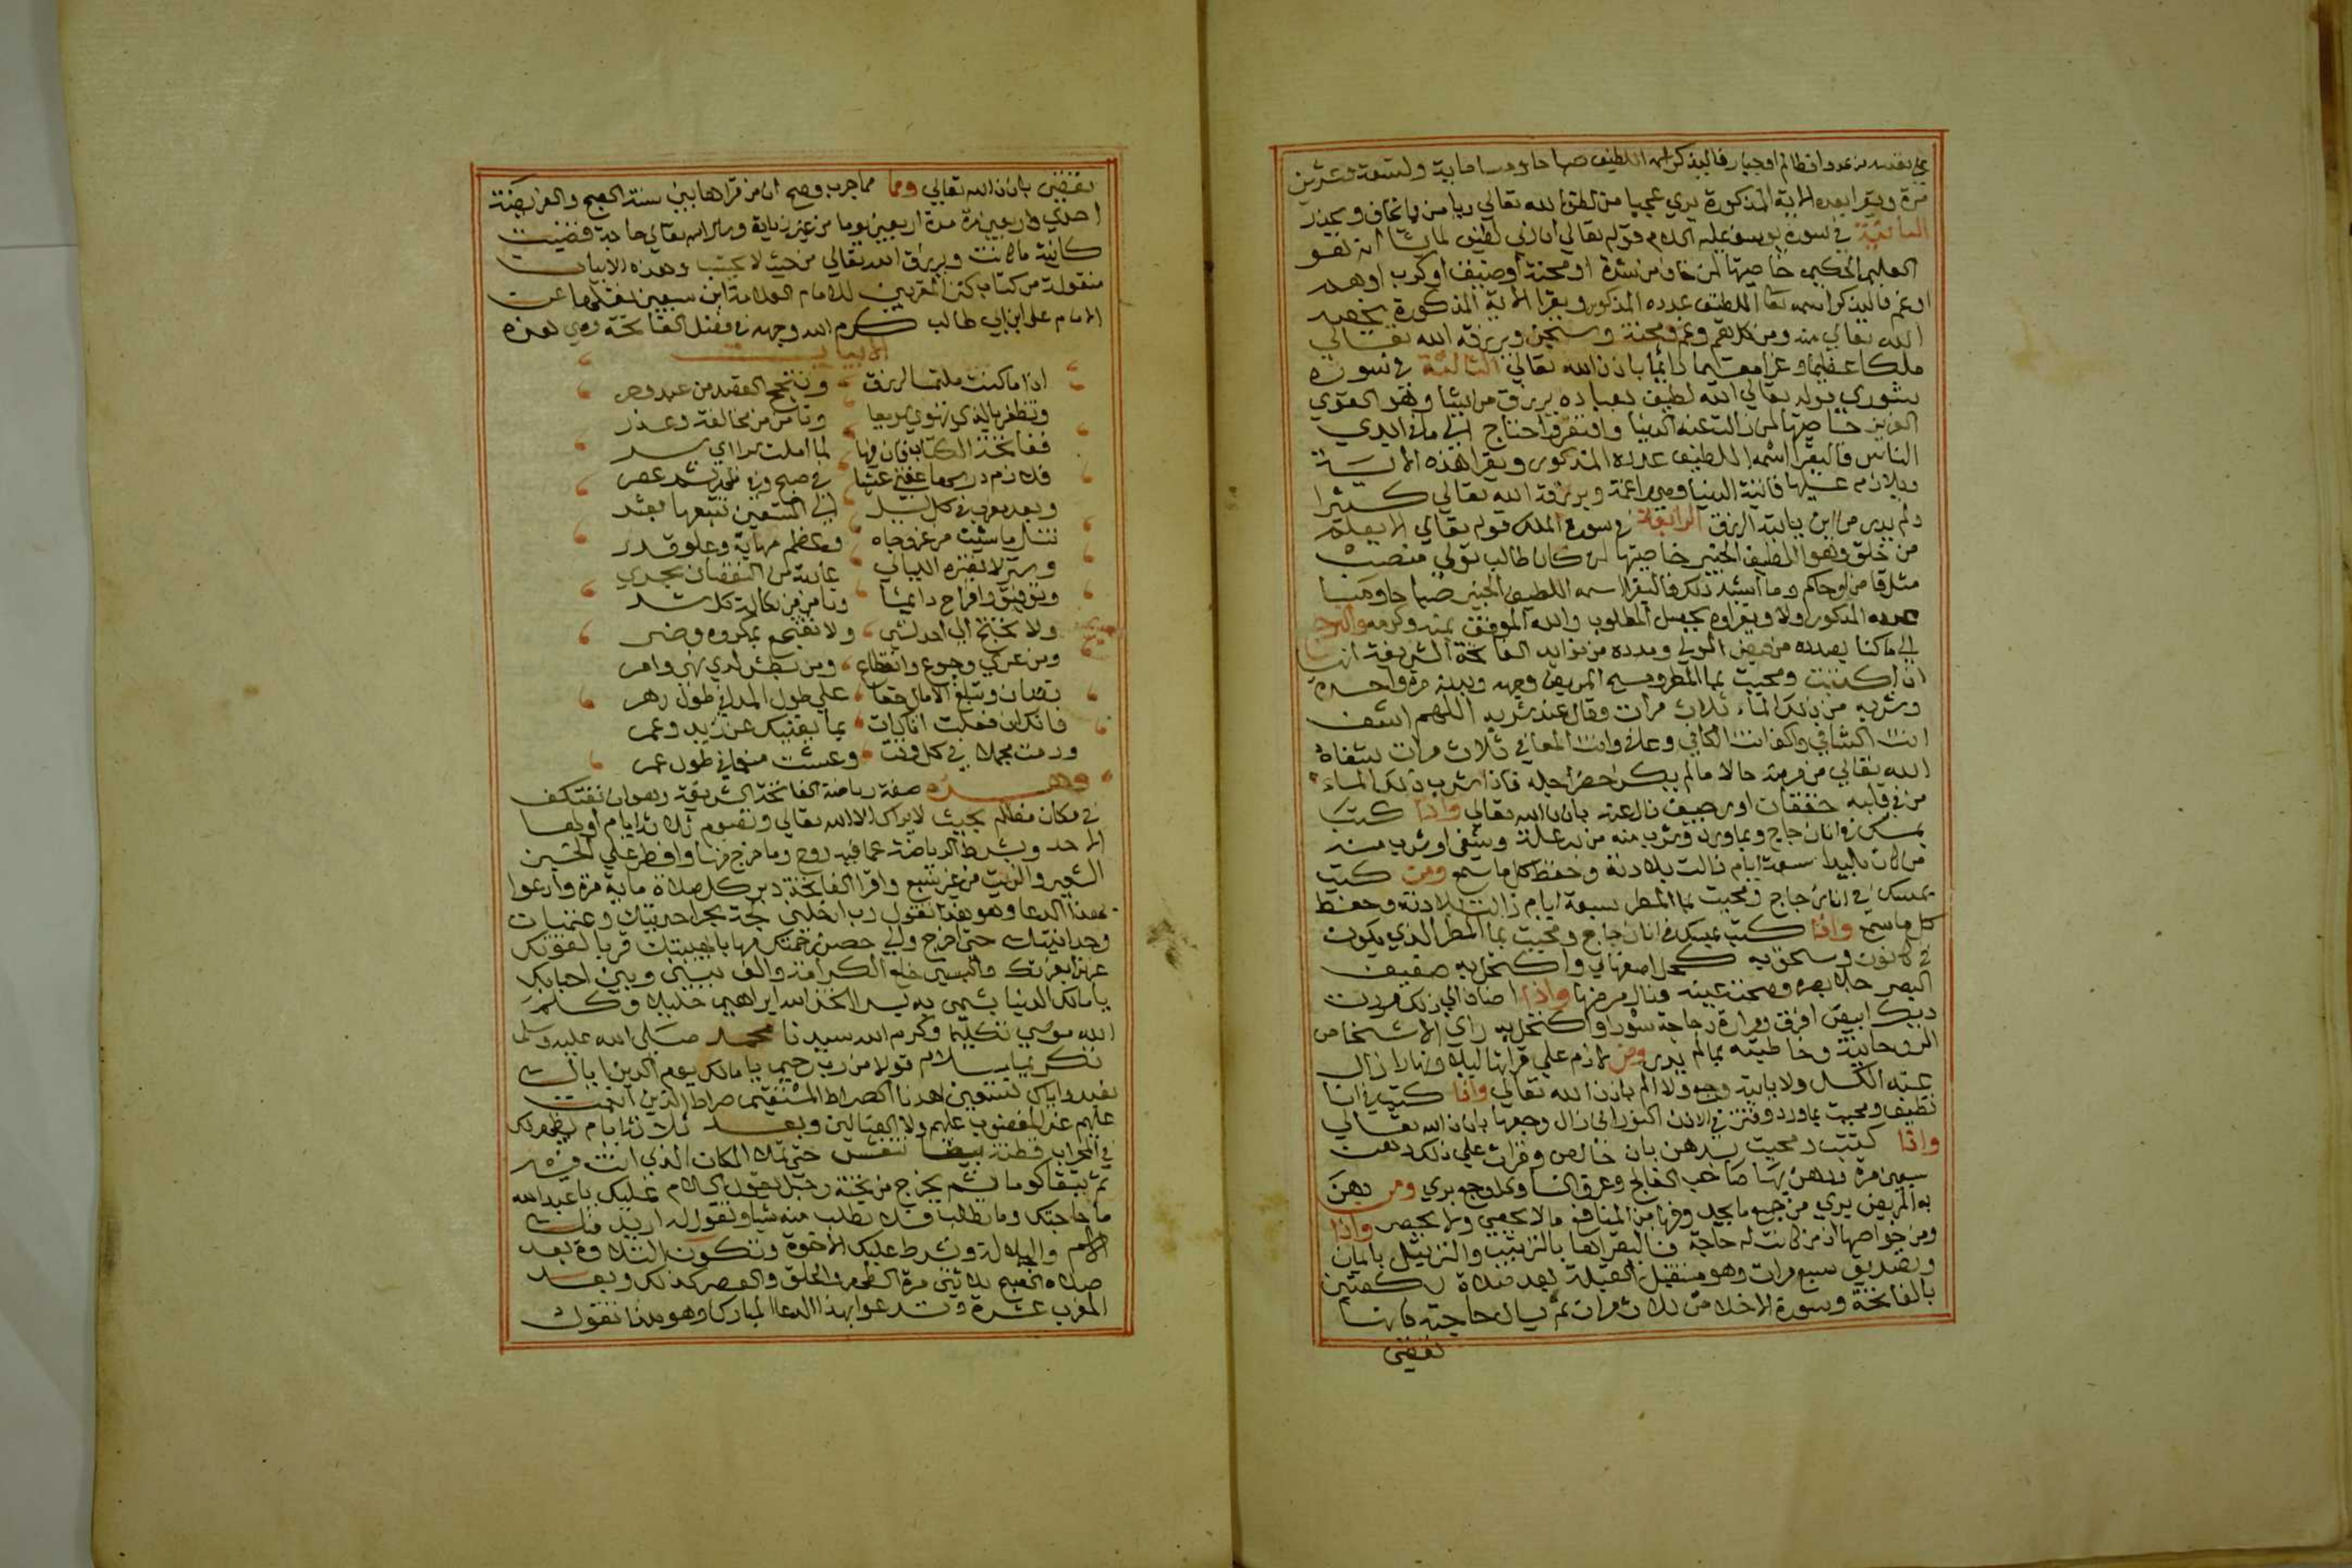 على نفسه من عدو او ظالم او جبار فاليذكر اسمه اللطيف صباحا ومساء ماية وتسعة وعشرين
مرة ويقرا بعده الاية المذكورة يري عجبا من لطف الله تعالي ويامن ما يخاف ويحذر
الثانية في سورة يوسف عليه السلام قوله تعالي ان ربي لطيف لما يشا انه هو
العليم الحكيم خاصيتها لمن خاف من شدة او محنة او ضيق او كرب او هم
او غم فاليذكر اسمه تعا اللطيف عدده المذكور ويقرا الاية المذكورة يخلصه
الله تعالي منه ومن كل هم وغم ومحنة وسجن ويرزقه الله تعالي
ملكا عظيما وعزا مقيما دائما باذن الله تعالي الثالثة في سورة
شوري قوله تعالي الله لطيف بعباده يرزق من يشا وهو القوي
العزيز خاصيتها لمن زالت عنه الدنيا وافتقر واحتاج الي ما في ايدي
الناس فاليقرا اسمه اللطيف عدده المذكور ويقرا هذه الاية
ويلازم عليها فاتته الدنيا وهي راغمة ويرزقه الله تعالي كثيرا
ولم يدر من اين ياتيه الرزق الرابعة في سورة الملك قوله تعالي الا يعلم
من خلق وهو اللطيف الخبير خاصيتها لمن كان طالب تولي منصب
مثل قاض او حاكم وما اشبه ذلك فاليقرا اسمه اللطيف الخبير صباحا ومسا
عدده المذكور اولا ويقراوه يحصل المطلوب والله الموفق بمنه وكرمه والنرجع
الي ما كنا بصدده من فيض المولي ومدده من فوايد الفاتحة الشريفة انها
اذا كتبت ومحيت بما المطر ومسح المريض وجهه وبدنه مرة واحدة
وشربه من ذلك الماء ثلاث مرات وقال عند شربه اللهم اشف
انت الشافي واكف انت الكافي وعاف وانت المعافي ثلاث مرات شفاه
الله تعالي من مرضه حالا ما لم يكن حضر اجله فاذا شرب ذلك الماء
من في قلبه خفقان او رجيف زال عنه باذن الله تعالي واذا كتبت
بمسك في انا زجاج وبماورد وشرب منه من به علة وشفي او شرب منه
من كان بليدا سبعة ايام زالت بلادته وحفظ كل ما سمع ومن كتب
بمسك في انا زجاج ومحيت بما المطر سبعة ايام زالت بلادته وحفظ
كل ما سمع واذا كتبت بمسك في انا زجاج ومحيت بما المطر الذي يكون
في كانون وسحق به كحل اصفهاني واكتحل به ضعيف
البصر جلا بصره وصحت عينه وزال مرضها واذا اضاف الي ذلك مرارت
ديك ابيض افرق ومرارة دجاجة سودا واكتحل به راي الاشخاص
الروحانية وخاطبته بما لم يدر ومن لازم علي قراتها ليلا ونهارا زال
عنه الكسل ولا ياتيه وجع ولا الم باذن الله تعالي واذا كتبت في انا
نظيف ومحيت بماورد وقطر في الاذن الموجوع زال وجعها باذن الله تعالي
واذا كتبت ومحيت بدهن بان خالص وقرات علي ذلك دهن
سبعين مرة ودهن بها صاحب الفالج وعرق النسا وكل وجع بري ومن دهن
به المريض يري من جميع ما يجد وفيها من المنافع ما لا يحصي ولا يحصر واذا
ومن خواصها ان من كانت له حاجة فاليقراها بالترتيب والترتيل بايمان
وتصديق سبع مرات وهو مستقبل القبلة بعد صلاة ركعتين
بالفاتحة وسورة الاخلاص ثلاث مرات ثم يسال حاجته فانها
تقضي
تقضي باذن الله تعالي ومما مما جرب وصح ان من قراها بين سنة الصبح والفريضة
احدي واربعين مرة مدة اربعين يوما من غير زيادة وسال الله تعالي حاجة قضيت
كائنة ما كانت ويرزق الله تعالي من حيث لا يحتسب وهذه الابيات
منقولة من كتاب كنز المقربين للامام العلامة ابن سبعين نقلها عن
الامام علي ابن ابي طالب كرم الله وجهه في فضل الفاتحة وهي هذه
الابيات
اذا ما كنت ملتمسا لرزق ونجح القصد من عبد وحر
وتظفر بالذي تهوي سريعا وتامن من مخالفة وغدر
ففاتحة الكتاب فان فيها لما املت سرا اي سر
فلازم درسها عقبي عشا وفي صبح وفي ظهر وعصر
وبعد مغرب في كل ليل الي التسعين تتبعها بعشر
تنال ما شئت من عز وجاه وعظم مهابة وعلو قدر
وستر لا تغيره الليالي بحادثة من النقصان يجري
وتوفيق وافراح دائما وتامن من نكاية كل شر
ولا تحتج الي احد لشي ولا تفجع بمكروه وضر
ومن عري وجوع وانقطاع ومن بطش لذي نهي وامر
تصان وتبلغ الامال حقا علي طول المدي في طول دهر
فانك ان فعلت اتاك ات بما يغنيك عن زيد وعمر
ودمت مجملا في كل وقت وعشت منعما في طول عمر
وهذه صفة رياضة الفاتحة الشريفة وهو ان تعتكف
في مكان مظلم بحيث لا يراك الا الله تعالي وتصوم ثلاثة ايام اولها
الاحد وبشرط الرياضة عما فيه روح وما خرج منها وافطر علي الخبز
الشعير والزيت من غير شبع واقرا الفاتحة دبر كل صلاة ماية مرة وادعوا
بهذا الدعا وهو هذا تقول رب ادخلني لجة بحر احديتك وغمرات
وحدانيتك حتي اخرج والي حصن رحمتك مهابا بهيبتك قويا بقوتك
عزيزا بعزتك والبسني خلع الكرامة والف بيني وبين احبابك
يا مالك الدنيا بسم به اتخذ الله ابراهيم خليلا وكلم
الله موسي تكليما وكرم الله سيدنا محمد صلي الله عليه وسلم
تكريما سلام قولا من رب رحيم يا مالك يوم الدين اياك
نعبد واياك نستعين اهدنا الصراط المستقيم صراط الذين انعمت
عليهم غير المغضوب عليهم ولا الضالين وبعد ثلاثة ايام يظهر لك
في المحراب قطنة بيضا تنفش حتي تملا المكان الذي انت فيه
ثم تبقا كوما ثم يخرج من تحته رجل يقول السلام عليك يا عبد الله
ما حاجتك وما تطلب فلا تطلب منه شيا وتقول له اريد منك
الاسم والدلالة وشرط عليك الاخوة وتكون التلاوة بعد
صلاة الصبح ثلاثين مرة الظهر والعصر كذلك وبعد
المغرب عشرة وتدعوا بهذا الدعا المبارك وهو هذا تقول